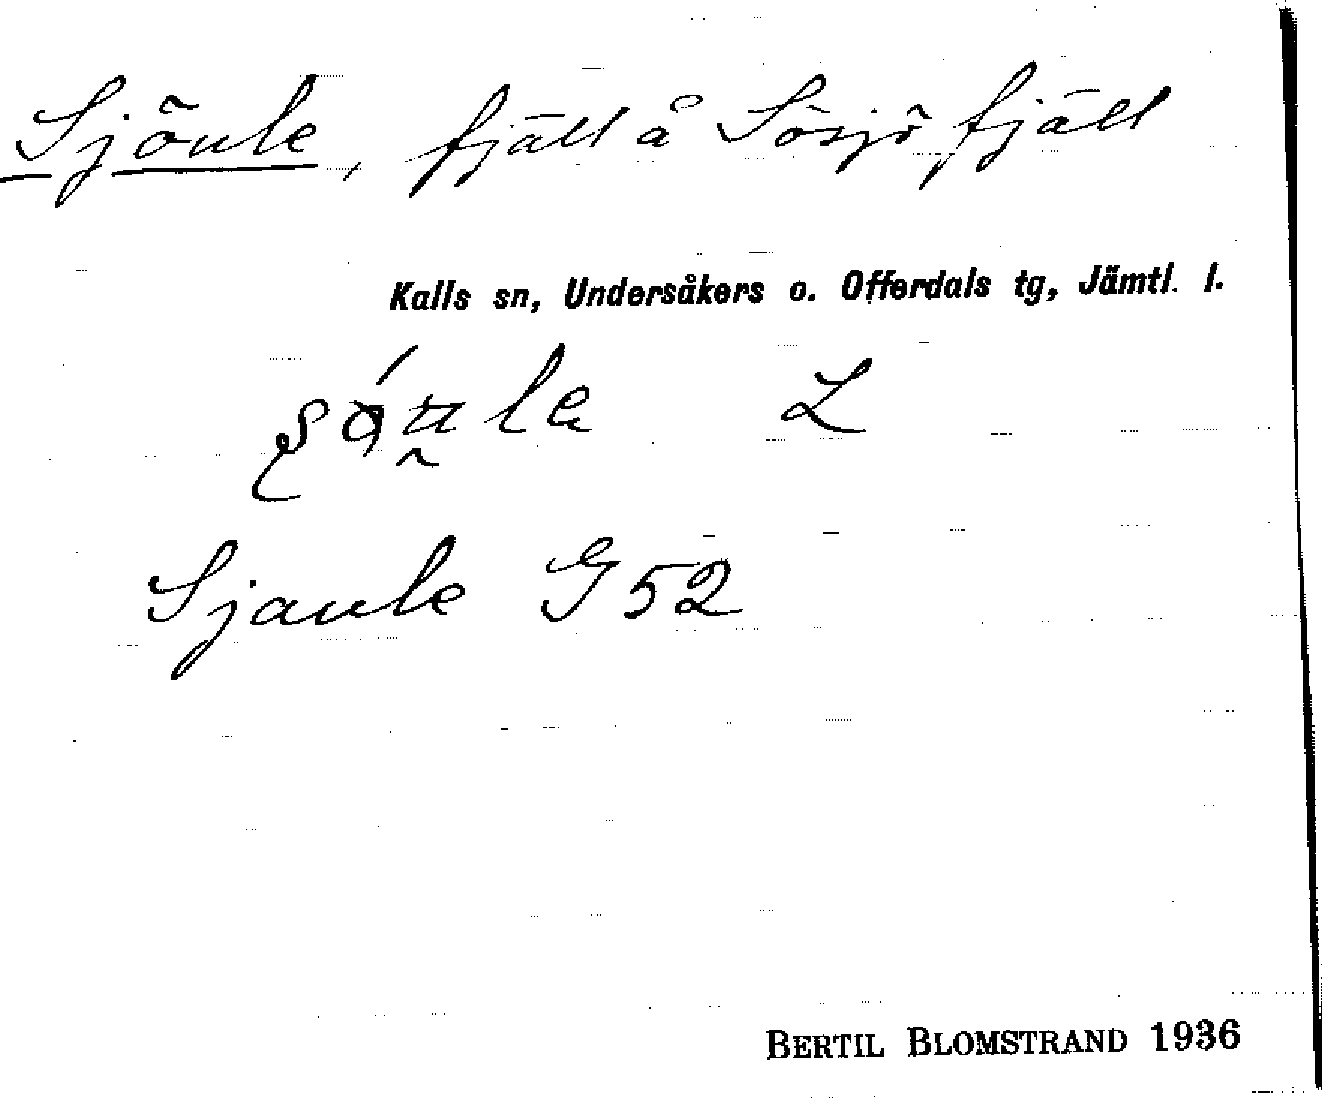 Sjöule, fjäll å Sösjöfjäll
Kalls sn, Undersåkers o. Offerdals tg, Jämtl. l.
L
Sjaule G52
BERTIL BLOMSTRAND 1936